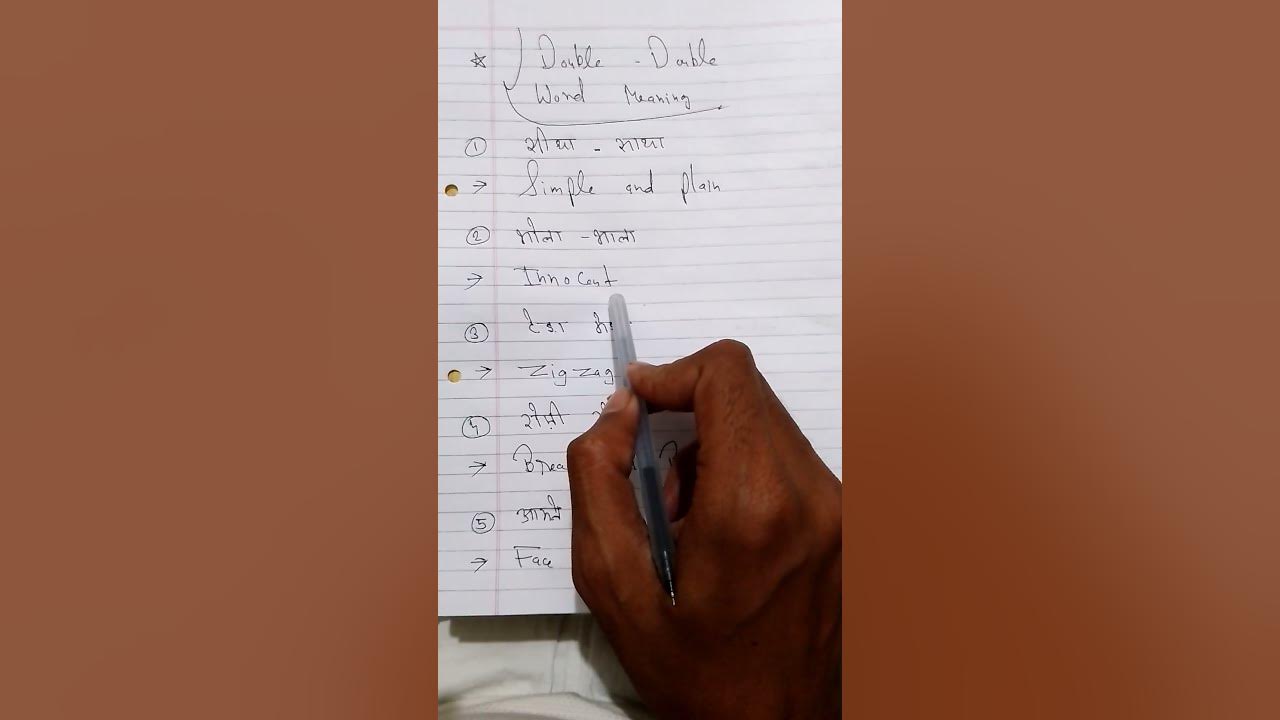 ☆ Double - Double
Word Meaning
① सीधा - साधा
→ Simple and plain
② भोला - भाला
→ Innocent
③ टेडा
→ Zigzag
④
→
⑤ आमने
→ Face